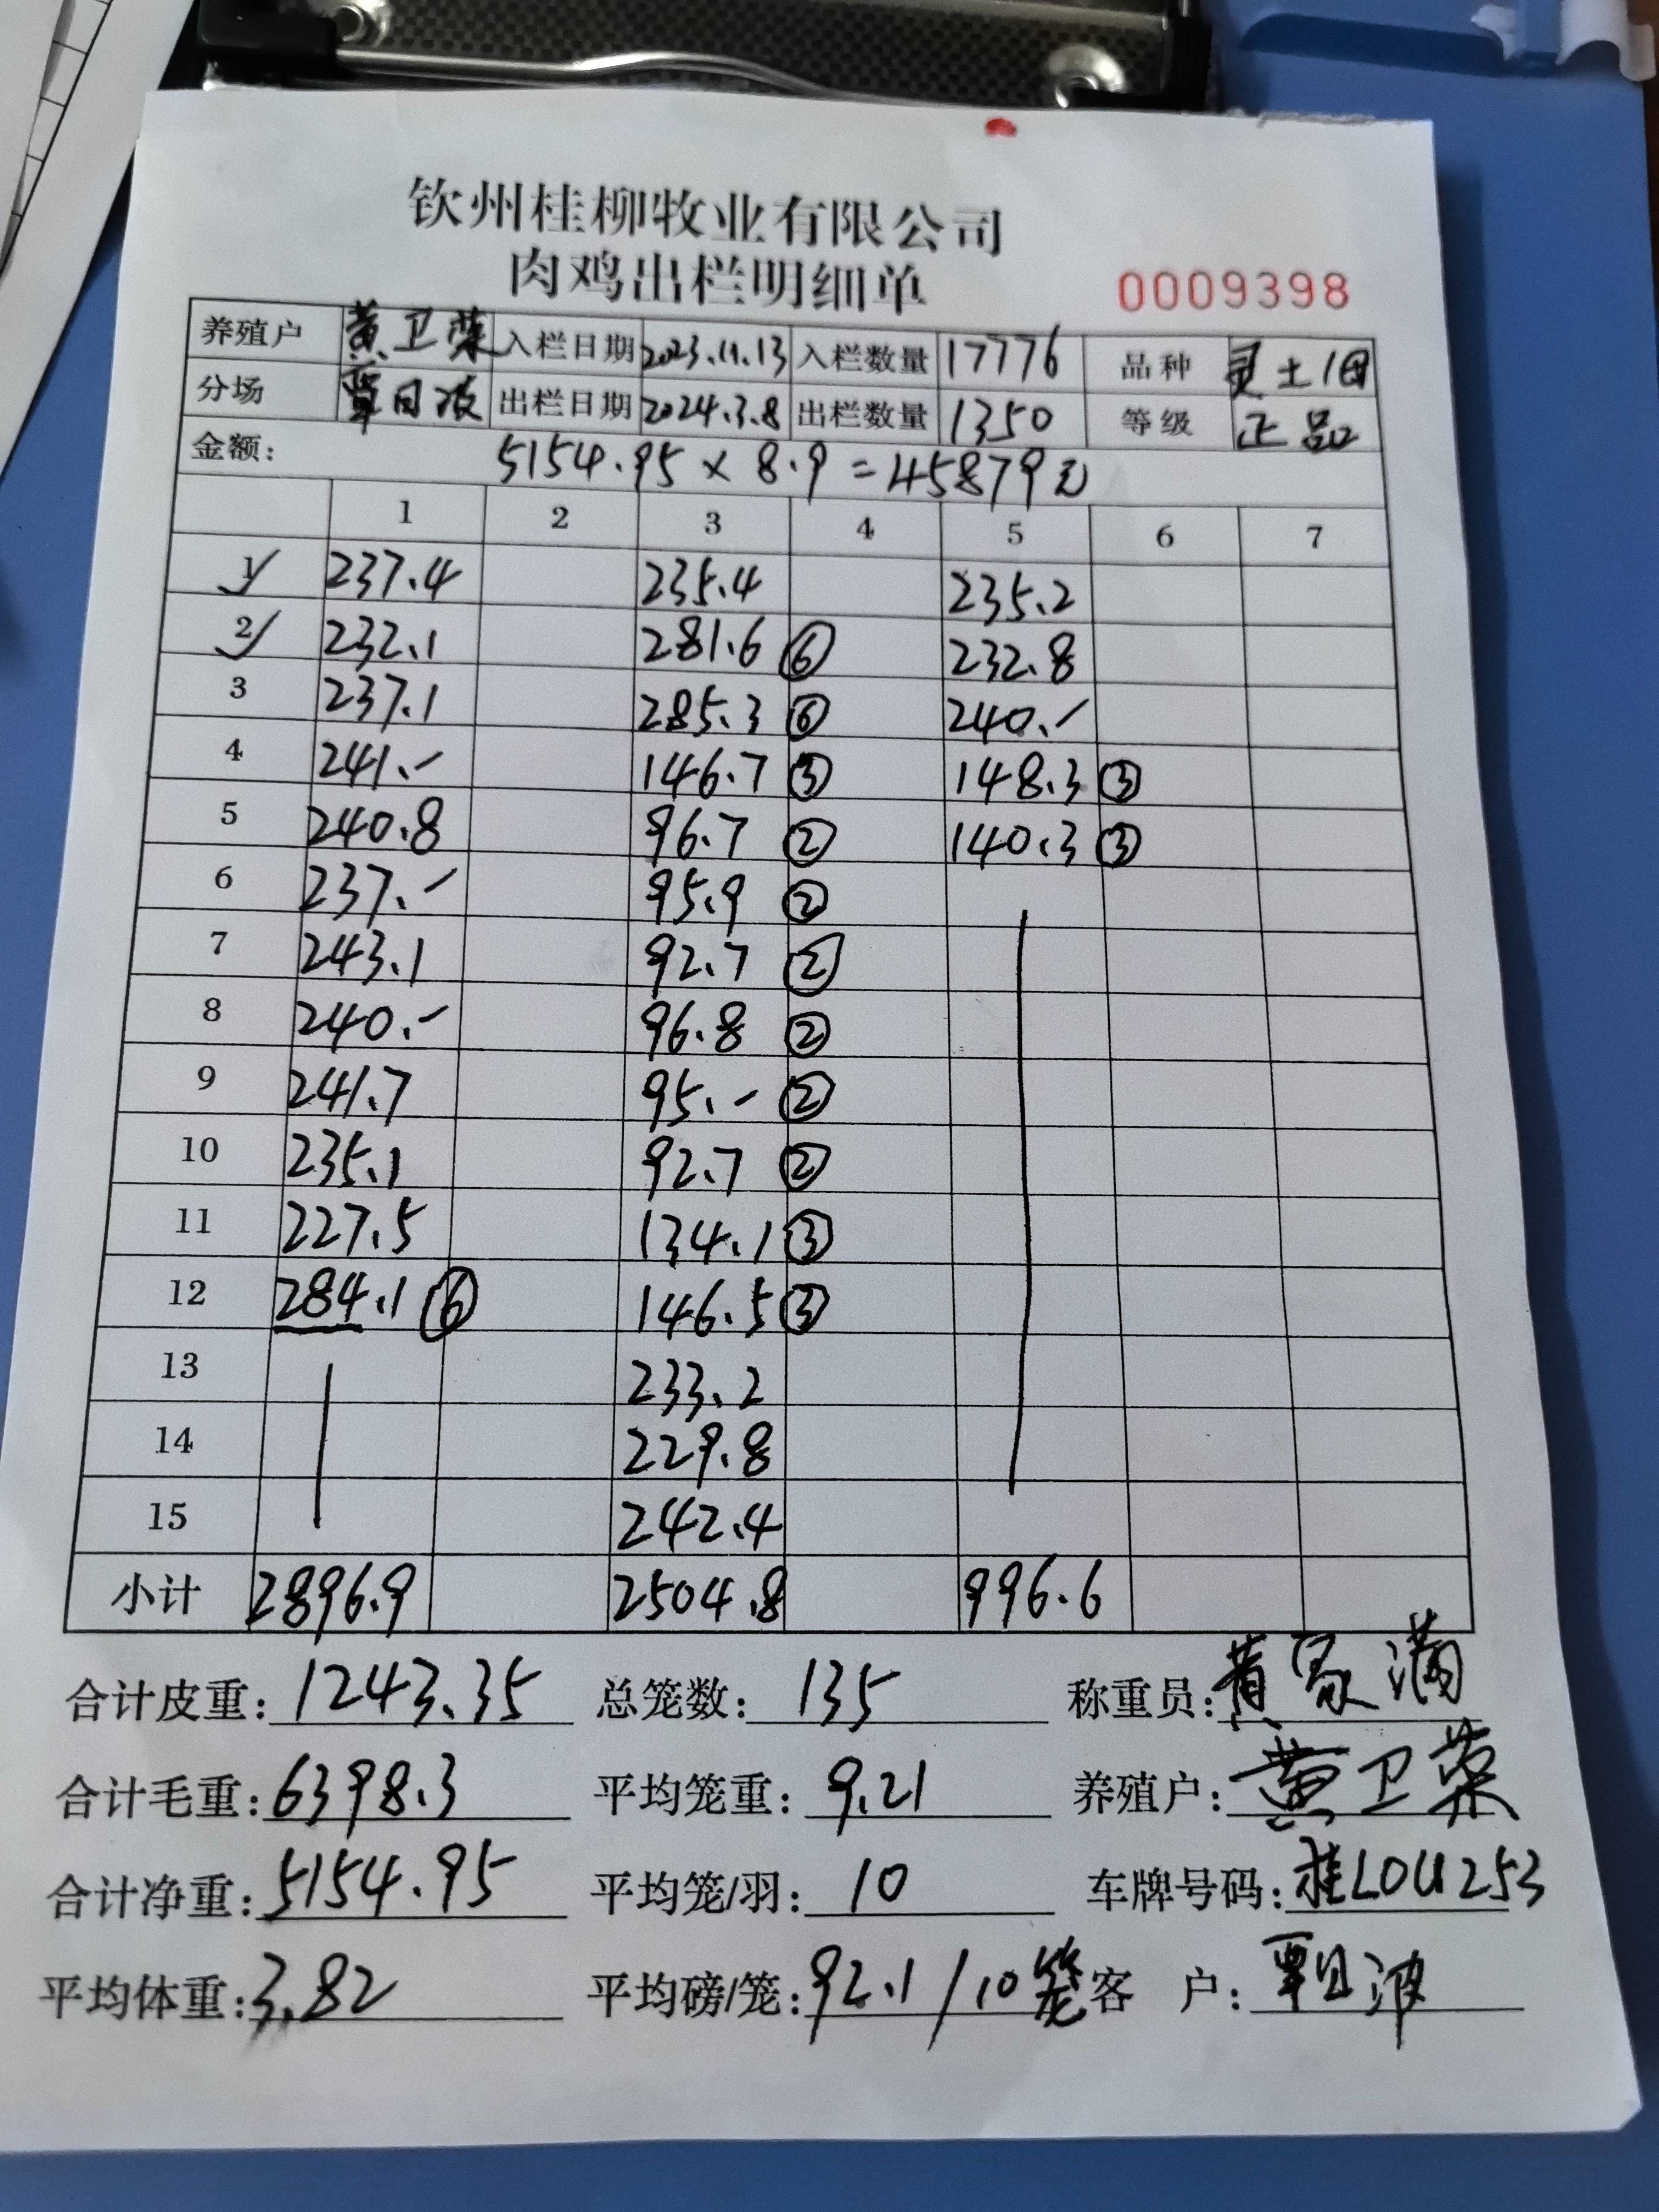 钦州桂柳牧业有限公司
肉鸡出栏明细单 0009398
养殖户 黄卫荣 入栏日期 2023.11.13 入栏数量 17776 品种 灵土1母
分场 覃日波 出栏日期 2024.3.8 出栏数量 1350 等级 正品
金额: 5154.95 × 8.9 = 45879元
1 2 3 4 5 6 7
1 237.4 235.4 235.2
2 232.1 281.6 ⑥ 232.8
3 237.1 285.3 ⑥ 240.-
4 241.- 146.7 ③ 148.3 ③
5 240.8 96.7 ② 140.3 ③
6 237.- 95.9 ②
7 243.1 92.7 ②
8 240.- 96.8 ②
9 241.7 95.- ②
10 235.1 92.7 ②
11 227.5 134.1 ③
12 284.1 ⑥ 146.5 ③
13 233.2
14 229.8
15 242.4
小计 2896.9 2504.8 996.6
合计皮重: 1243.35 总笼数: 135 称重员: 黄家满
合计毛重: 6398.3 平均笼重: 9.21 养殖户: 黄卫荣
合计净重: 5154.95 平均笼/羽: 10 车牌号码: 桂L0U253
平均体重: 3.82 平均磅/笼: 92.1/10笼 客 户: 覃日波